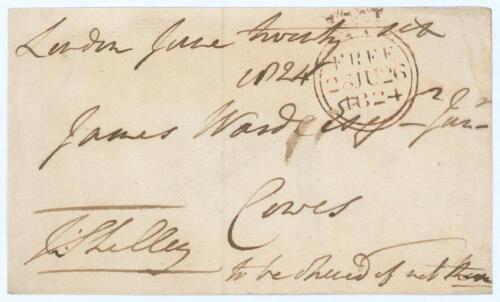 London June twenty six
1824
FREE
26 JU 26
1824
James Ward Esqr Junr
Cowes
J Shelley
to be opened if not